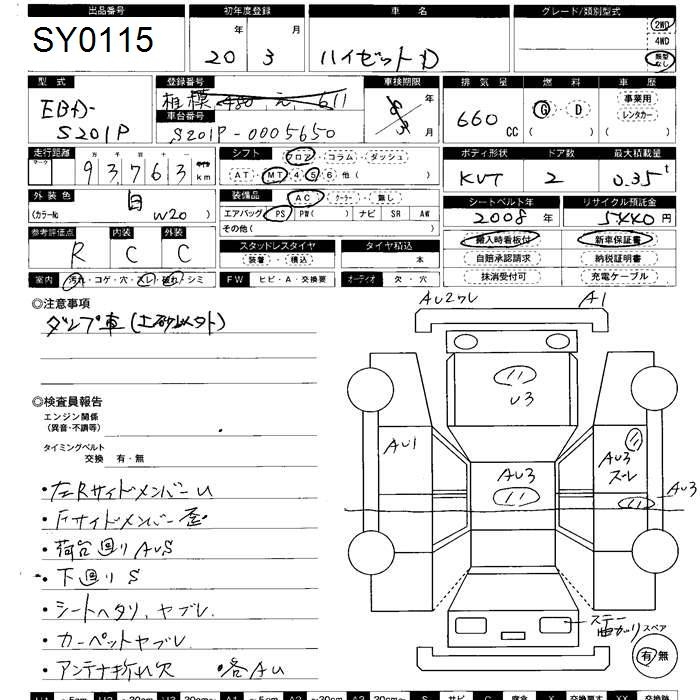 出品番号 初年度登録 車 名 グレード/類別型式
SY0115 年 月 2WD
20 3 ハイゼットD 4WD
類型なし
型 式 登録番号 車検期限 排 気 量 燃 料 車 歴
EBD- 相模 480 え 611 年 660 CC G・D 事業用
S201P 車台番号 月 ( )( ) レンタカー
S201P-0005650
走行距離 シフト フロア・コラム・ダッシュ ボディ形状 ドア数 最大積載量
マーク 万 千 百 十 一 マイル
9 3 7 6 3 km AT・MT 4 5 6 他( ) KVT 2 0.35 t
外 装 色 白 装備品 AC・クーラー・無し シートベルト年 リサイクル預託金
(カラーNo W20 ) エアバッグ PS PW( ) ナビ SR AW 2008年 5440円
その他( )
参考評価点 内装 外装 搬入時看板付 新車保証書
R C C スタッドレスタイヤ タイヤ積込 自賠承認請求 納税証明書
装着・積込 本 抹消受付可 充電ケーブル
室内 汚れ・コゲ・穴・スレ・破れ・シミ FW ヒビ・A・交換要 オーディオ 欠・穴
◎注意事項
ダンプ車(土砂以外)
◎検査員報告
エンジン関係
(異音・不調等)
タイミングベルト
交換 有・無
・左Rサイドメンバーu
・Fサイドメンバー歪
・荷台回りAuS
・下回りS
・シートヘタリ、ヤブレ
・カーペットヤブレ
・アンテナ折れ欠 ・各Au
Au2ワレ A1
U3
AU1
AU3
AU3
ズーレ
AU3
ステー
曲がり
スペア
有 無